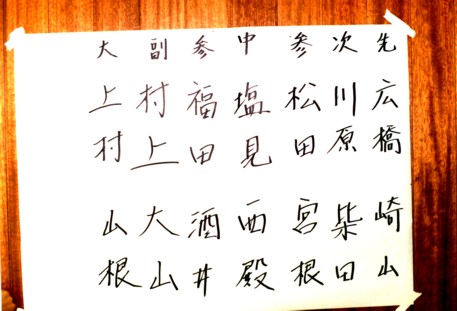 先 広橋 崎山
次 川原 柴田
参 松田 宮根
中 塩見 西殿
参 福田 酒井
副 村上 大山
大 上村 山根